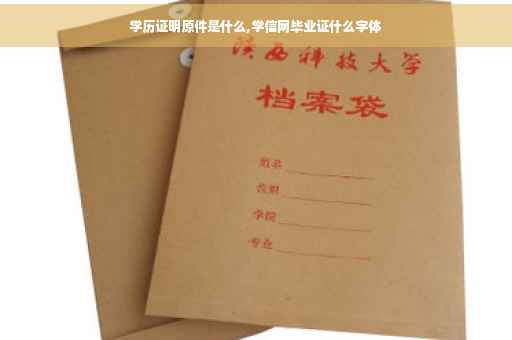 学历证明原件是什么,学信网毕业证什么字体
陕西科技大学
档案袋
学院
专业